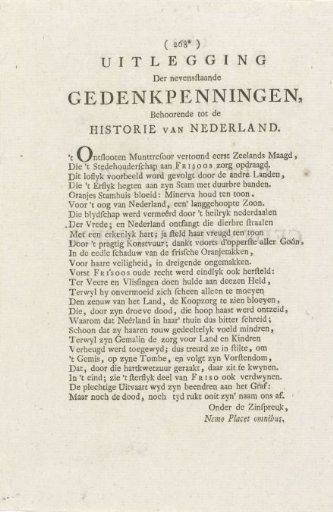 ( 268* )
UITLEGGING
Der nevensstaande
GEDENKPENNINGEN,
Behoorende tot de
HISTORIE VAN NEDERLAND.
't Ontslooten Muntresoor vertoond eerst Zeelands Maagd,
Die 't Stedehouderschap aan FRISOOS zorg opdraagd.
Dit loflyk voorbeeld werd gevolgt door de andre Landen,
Die 't Erflyk hegten aan zyn Stam met duurbre banden.
Oranjes Stamhuis bloeid: Minerva houd ten toon.
Voor 't oog van Nederland, een' langgehoopte Zoon.
Die blydschap werd vermeêrd door 't heilryk nederdaalen
Der Vrede; en Nederland ontfangt die dierbre straalen
Met een erkenlyk hart; ja steld haar vreugd ten toon
Door 't pragtig Konstvuur; dankt voorts d'opperste aller Goôn,
In de eedle schaduw van de frissche Oranjetakken,
Voor haare veiligheid, in dreigende ongemakken.
Vorst FRISOOS oude recht werd eindlyk ook hersteld:
Ter Veere en Vlissingen doen hulde aan deezen Held,
Terwyl hy onvermoeid zich scheen alleen te moeyen
Den zenuw van het Land, de Koopzorg te zien bloeyen,
Die, door zyn droeve dood, die hoop haast werd ontzeid,
Waarom dat Neêrland in haar' thuin dus bitter schreid;
Schoon dat zy haaren rouw gedeeltelyk voeld mindren,
Terwyl zyn Gemalin de zorg voor Land en Kindren
Verheugd werd toegewyd; dus treurd ze in stilte, om
't Gemis, op zyne Tombe, en volgt zyn Vorstendom,
Dat, door die hartkwetzuur geraakt, daar zit te kwynen.
In 't eind; zie 't sterflyk deel van FRISO ook verdwynen.
De plechtige Uitvaart wyd zyn beendren aan het Graf:
Maar noch de dood, noch tyd rukt ooit zyn' naam ons af.
Onder de Zinspreuk,
Nemo Placet omnibus.